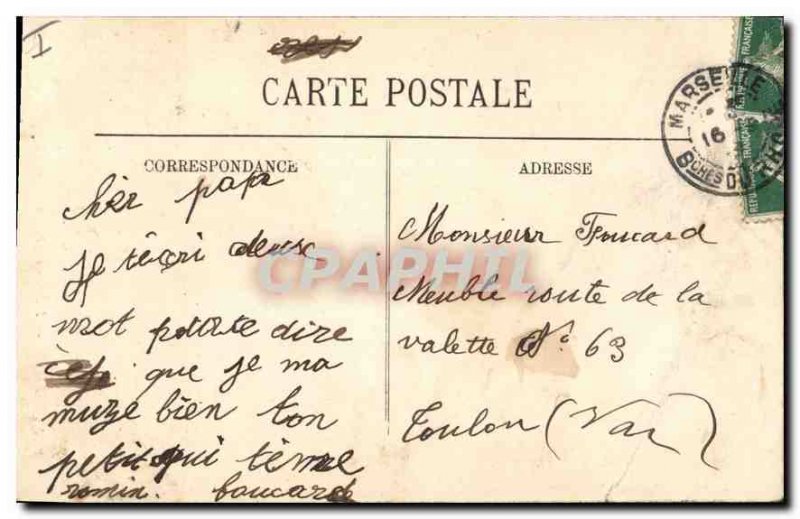 I
CARTE POSTALE
CORRESPONDANCE
ADRESSE
chèr papa
je técri deux
mot pour te dire
que je ma
muze bien ton
petit qui tème
romin. boucard
Monsieur Foucard
Meuble route de la
valette N° 63
Toulon (Var)
MARSEILLE
16
BCHES DU RHONE
CPAPHIL